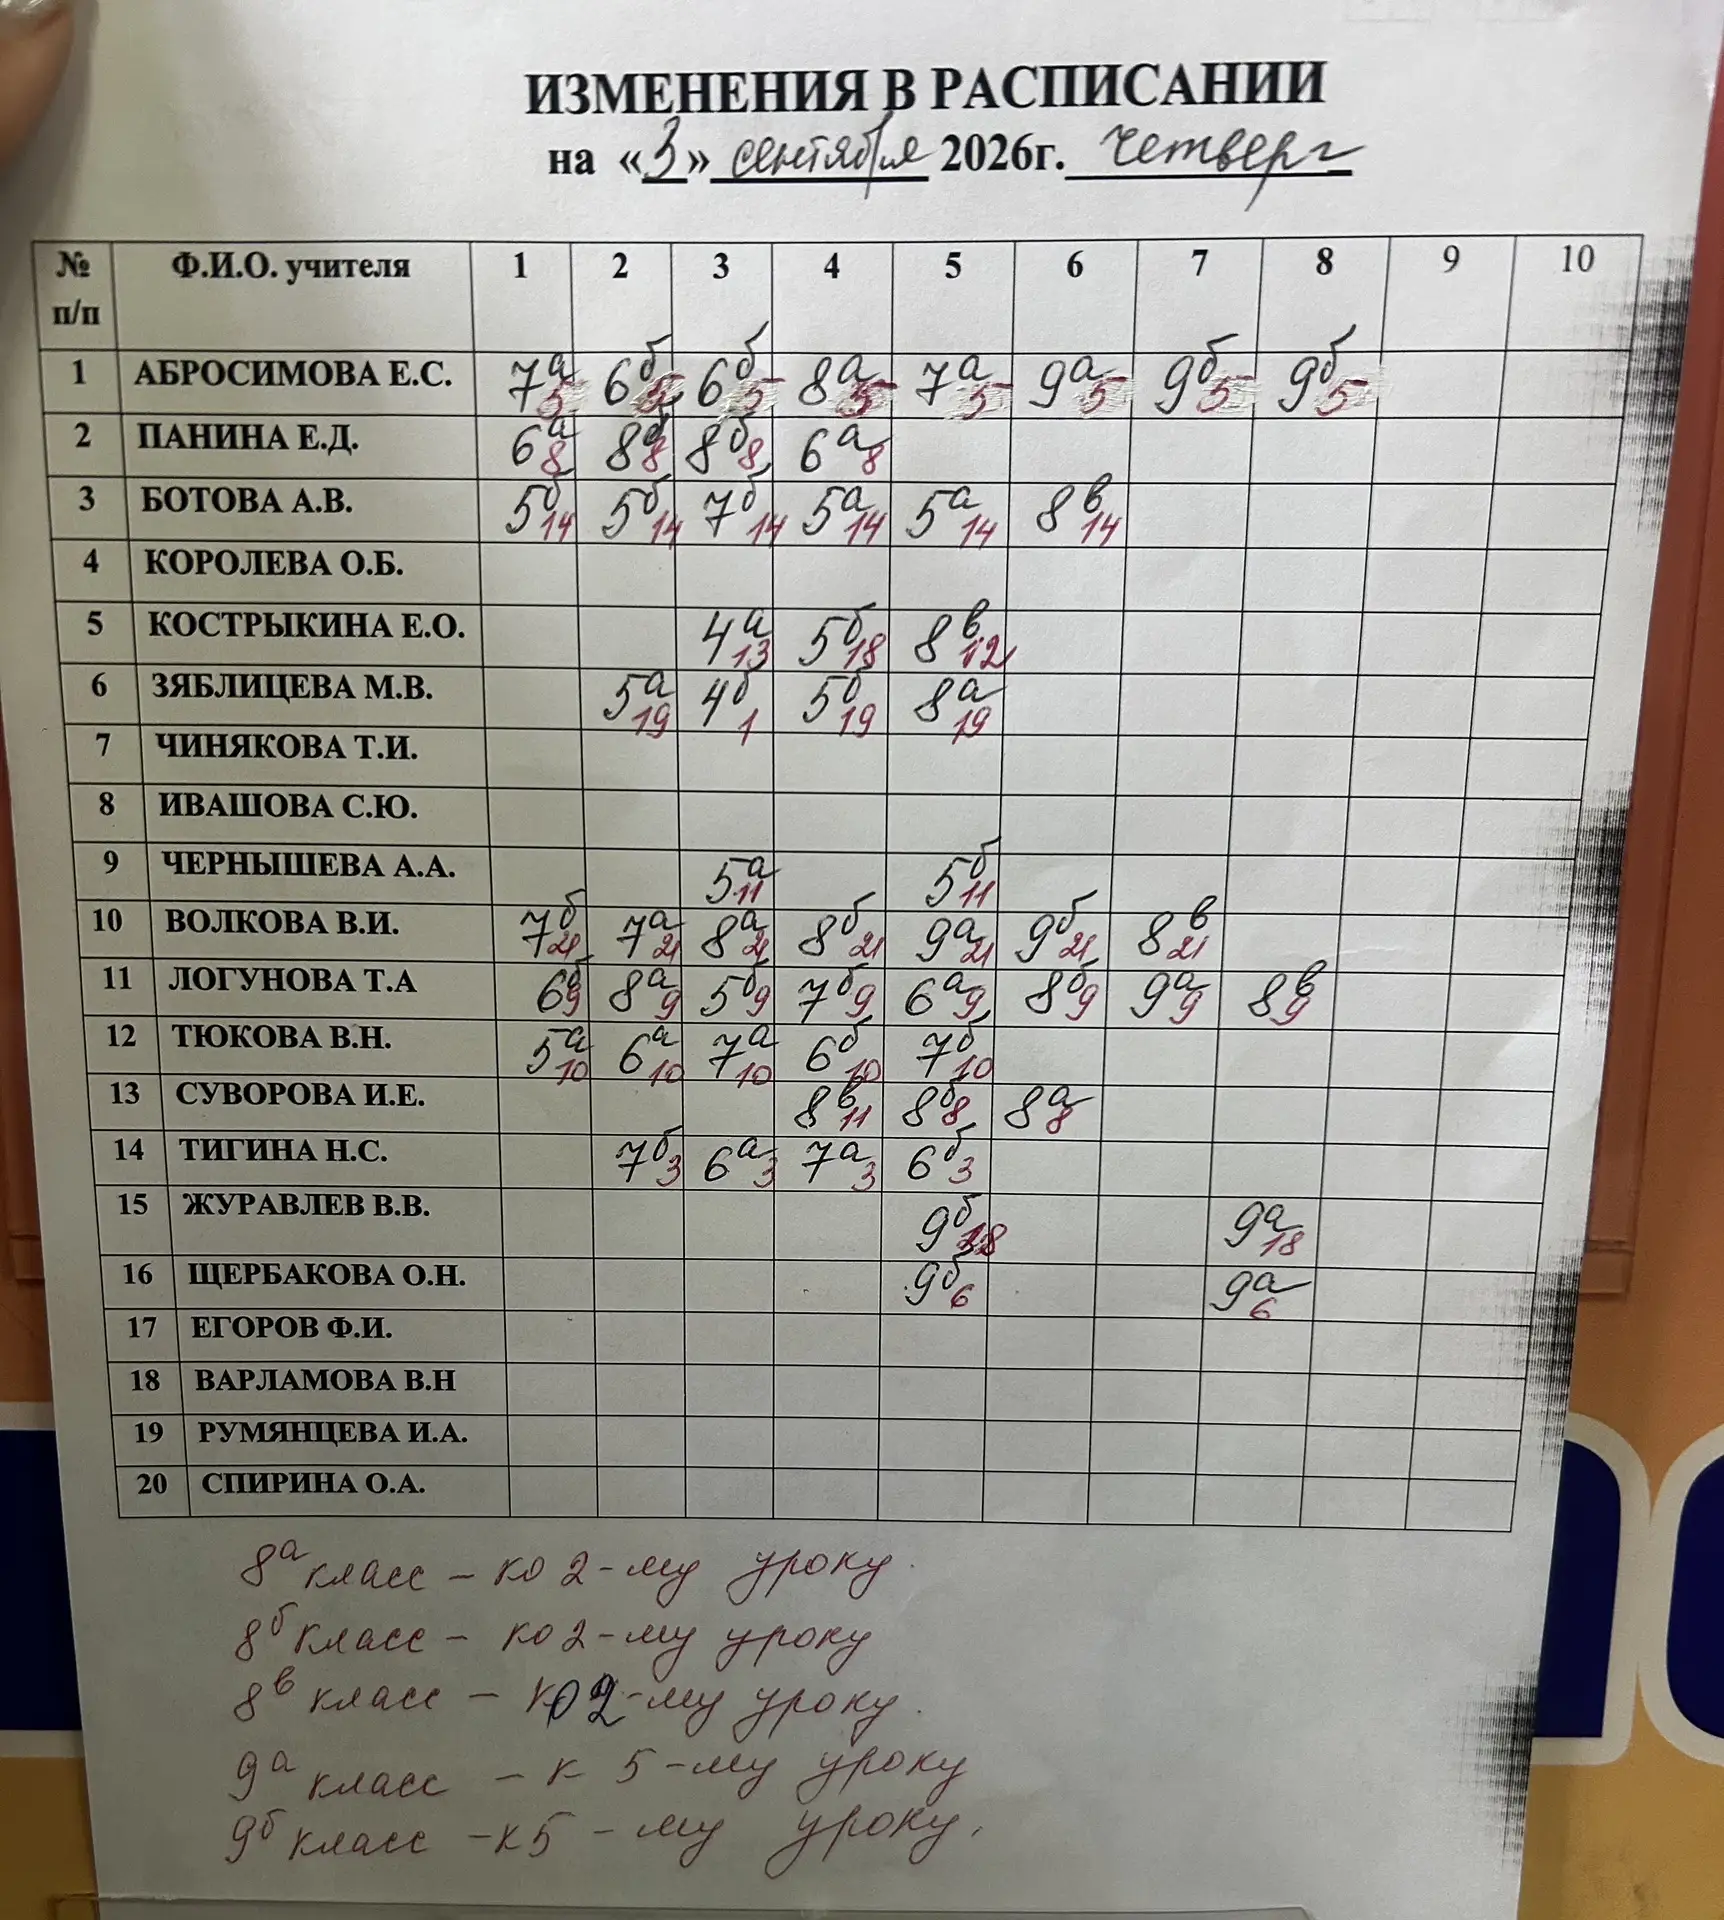 ИЗМЕНЕНИЯ В РАСПИСАНИИ
на «3» сентября 2026г. четверг
№ п/п Ф.И.О. учителя 1 2 3 4 5 6 7 8 9 10
1 АБРОСИМОВА Е.С. 7а 5 6б 5 6б 5 8а 5 7а 5 9а 5 9б 5 9б 5
2 ПАНИНА Е.Д. 6а 8 8 8 8б 8 6а 8
3 БОТОВА А.В. 5б 14 5б 14 7б 14 5а 14 5а 14 8в 14
4 КОРОЛЕВА О.Б.
5 КОСТРЫКИНА Е.О. 4а 13 5б 18 8в 12
6 ЗЯБЛИЦЕВА М.В. 5а 19 4б 1 5б 19 8а 19
7 ЧИНЯКОВА Т.И.
8 ИВАШОВА С.Ю.
9 ЧЕРНЫШЕВА А.А. 5а 11 5б 11
10 ВОЛКОВА В.И. 7б 21 7а 21 8а 21 8б 21 9а 21 9б 21 8в 21
11 ЛОГУНОВА Т.А 6б 9 8а 9 5б 9 7б 9 6а 9 8б 9 9а 9 8в 9
12 ТЮКОВА В.Н. 5а 10 6а 10 7а 10 6б 10 7б 10
13 СУВОРОВА И.Е. 8в 11 8б 8 8а 8
14 ТИГИНА Н.С. 7б 3 6а 3 7а 3 6б 3
15 ЖУРАВЛЕВ В.В. 9б 18 9а 18
16 ЩЕРБАКОВА О.Н. 9б 6 9а 6
17 ЕГОРОВ Ф.И.
18 ВАРЛАМОВА В.Н
19 РУМЯНЦЕВА И.А.
20 СПИРИНА О.А.
8а класс – ко 2-му уроку.
8б класс – ко 2-му уроку
8в класс – ко 2-му уроку.
9а класс – к 5-му уроку
9б класс – к 5-му уроку.